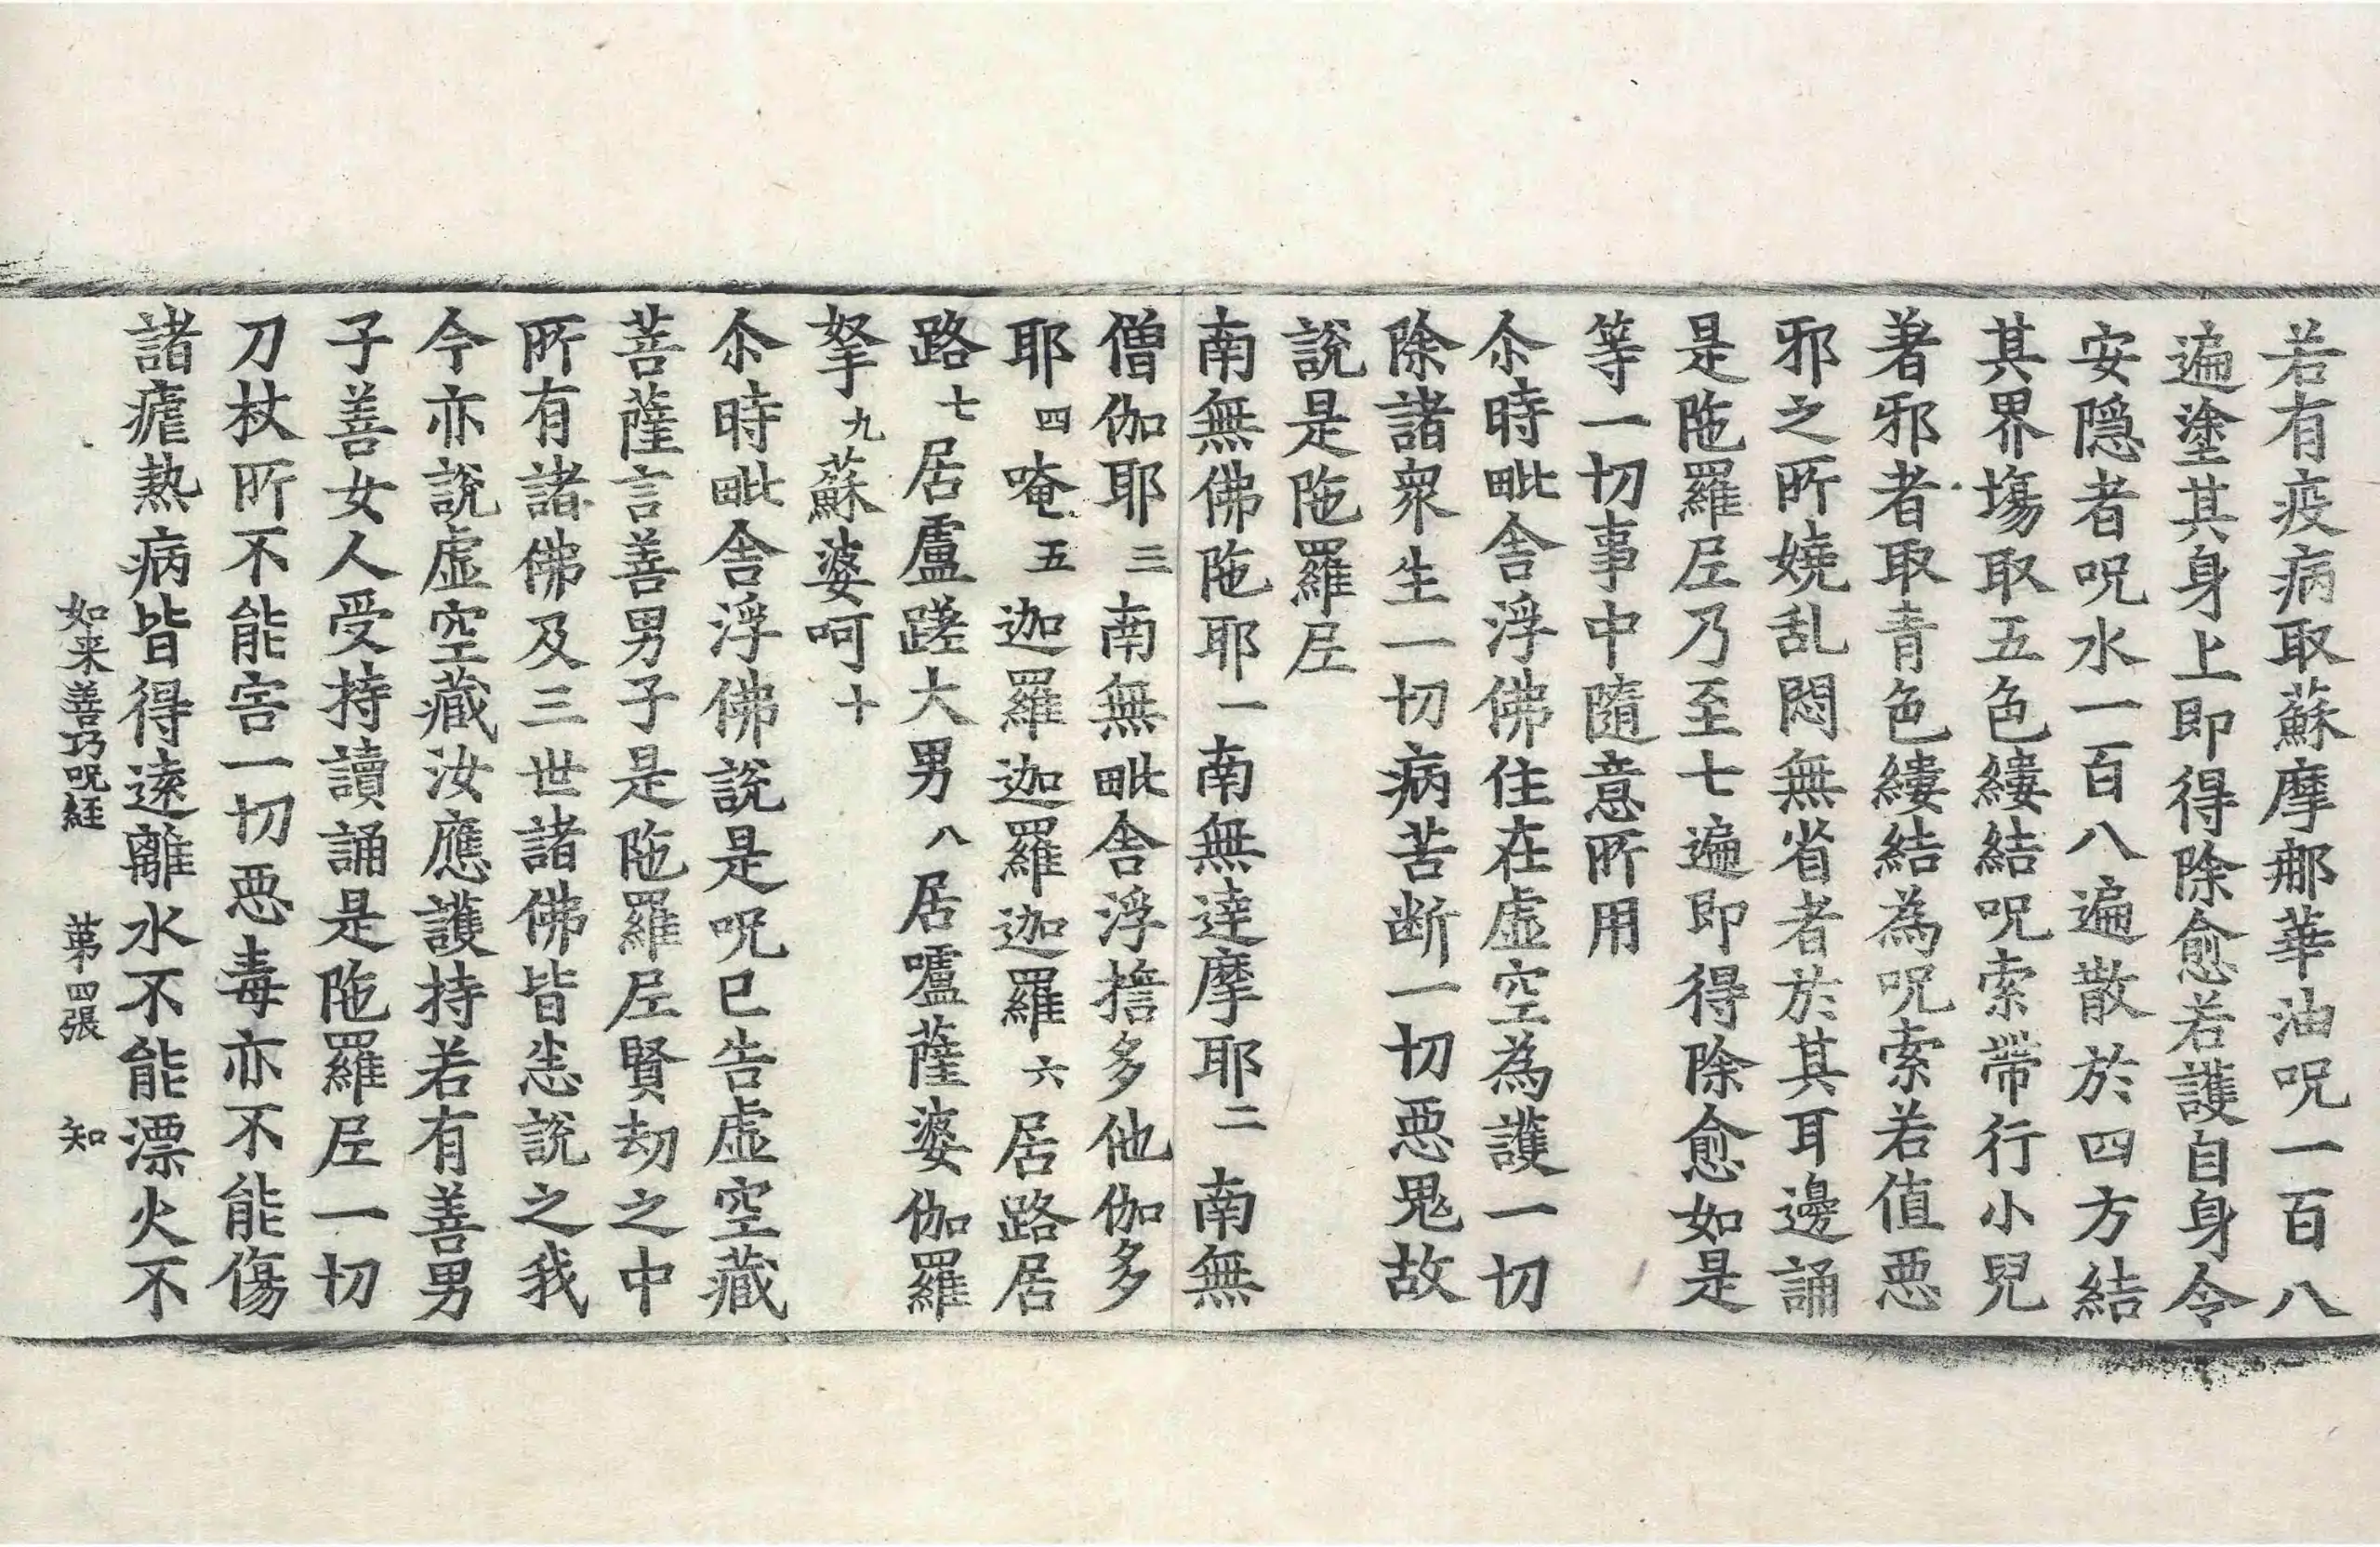 若有疫病取蘇摩那華油呪一百八
遍塗其身上即得除愈若護自身令
安隱者呪水一百八遍散於四方結
其界塲取五色縷結呪索帶行小兒
著邪者取青色縷結為呪索若值惡
邪之所嬈乱悶無省者於其耳邊誦
是陁羅尼乃至七遍即得除愈如是
等一切事中隨意所用
尒時毗舍浮佛住在虛空為護一切
除諸衆生一切病苦断一切惡鬼故
說是陁羅尼
南無佛陁耶一南無達摩耶二南無
僧伽耶三南無毗舍浮擔多他伽多
耶四唵五迦羅迦羅迦羅六居路居
路七居盧蹉大男八居嚧薩婆伽羅
拏九蘇婆呵十
尒時毗舍浮佛說是呪已告虛空藏
菩薩言善男子是陁羅尼賢劫之中
所有諸佛及三世諸佛皆悉說之我
今亦說虛空藏汝應護持若有善男
子善女人受持讀誦是陁羅尼一切
刀杖所不能害一切惡毒亦不能傷
諸瘧熱病皆得遠離水不能漂火不
如来善巧呪經 第四張 知